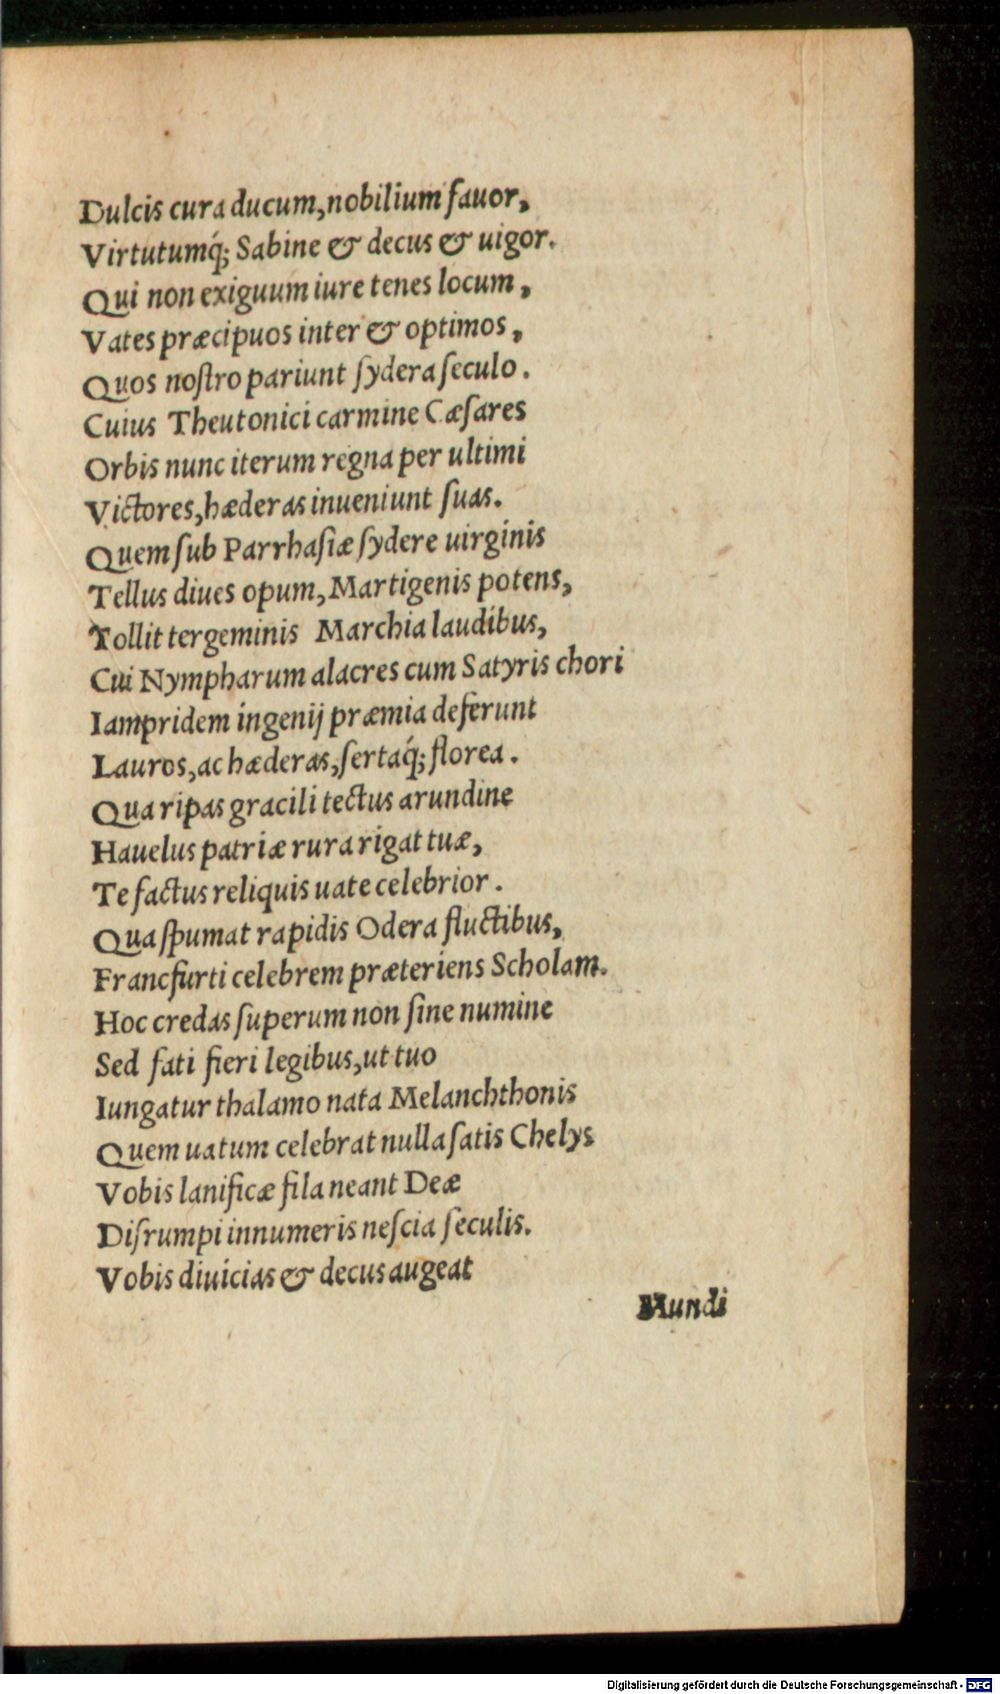 Dulcis cura ducum, nobilium fauor,
Virtutumq́; Sabine & decus & uigor.
Qui non exiguum iure tenes locum,
Vates præcipuos inter & optimos,
Quos nostro pariunt sydera seculo.
Cuius Theutonici carmine Cæsares
Orbis nunc iterum regna per ultimi
Victores, hæderas inueniunt suas.
Quem sub Parrhasiæ sydere uirginis
Tellus diues opum, Martigenis potens,
Tollit tergeminis Marchia laudibus,
Cui Nympharum alacres cum Satyris chori
Iampridem ingenij præmia deferunt
Lauros, ac hæderas, sertaq́; florea.
Qua ripas gracili tectus arundine
Hauelus patriæ rura rigat tuæ,
Te factus reliquis uate celebrior.
Qua spumat rapidis Odera fluctibus,
Francfurti celebrem præteriens Scholam.
Hoc credas superum non sine numine
Sed fati fieri legibus, ut tuo
Iungatur thalamo nata Melanchthonis
Quem uatum celebrat nulla satis Chelys
Vobis lanificæ fila neant Deæ
Disrumpi innumeris nescia seculis.
Vobis diuicias & decus augeat
Mundi
Digitalisierung gefördert durch die Deutsche Forschungsgemeinschaft - DFG